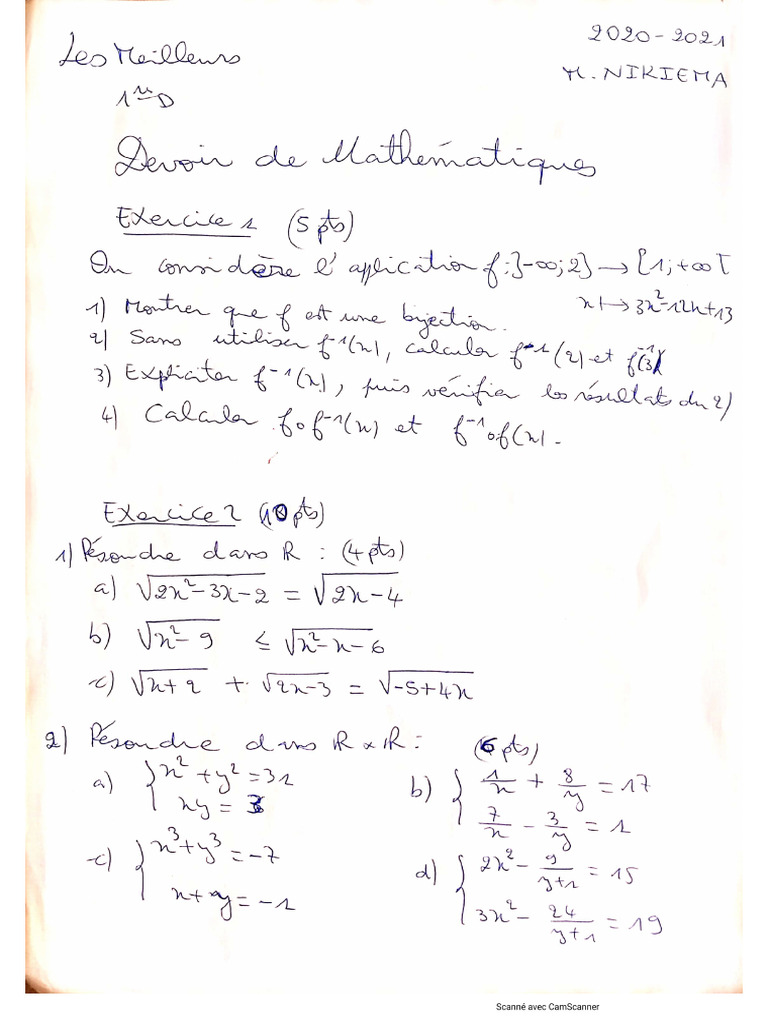 2020-2021
Les Meilleurs
M. NIKIEMA
1ère D
Devoir de Mathématiques
Exercice 1 (5 pts)
On considère l'application f : ]-∞; 2] → [1; +∞[
x ↦ 3x²-12x+13
1) Montrer que f est une bijection.
2) Sans utiliser f⁻¹(x), calculer f⁻¹(2) et f⁻¹(3).
3) Expliciter f⁻¹(x), puis vérifier les résultats du 2)
4) Calculer f∘f⁻¹(x) et f⁻¹∘f(x).
Exercice 2 (10 pts)
1) Résoudre dans ℝ : (4 pts)
a) √(2x²-3x-2) = √(2x-4)
b) √(x²-9) ≤ √(x²-x-6)
c) √(x+2) + √(2x-3) = √(-5+4x)
2) Résoudre dans ℝ × ℝ : (6 pts)
a) { x²+y² = 31
xy = 3
b) { 1/x + 8/y = 17
7/x - 3/y = 1
c) { x³+y³ = -7
x+y = -1
d) { 2x² - 9/(y+1) = 15
3x² - 24/(y+1) = 19
Scanné avec CamScanner